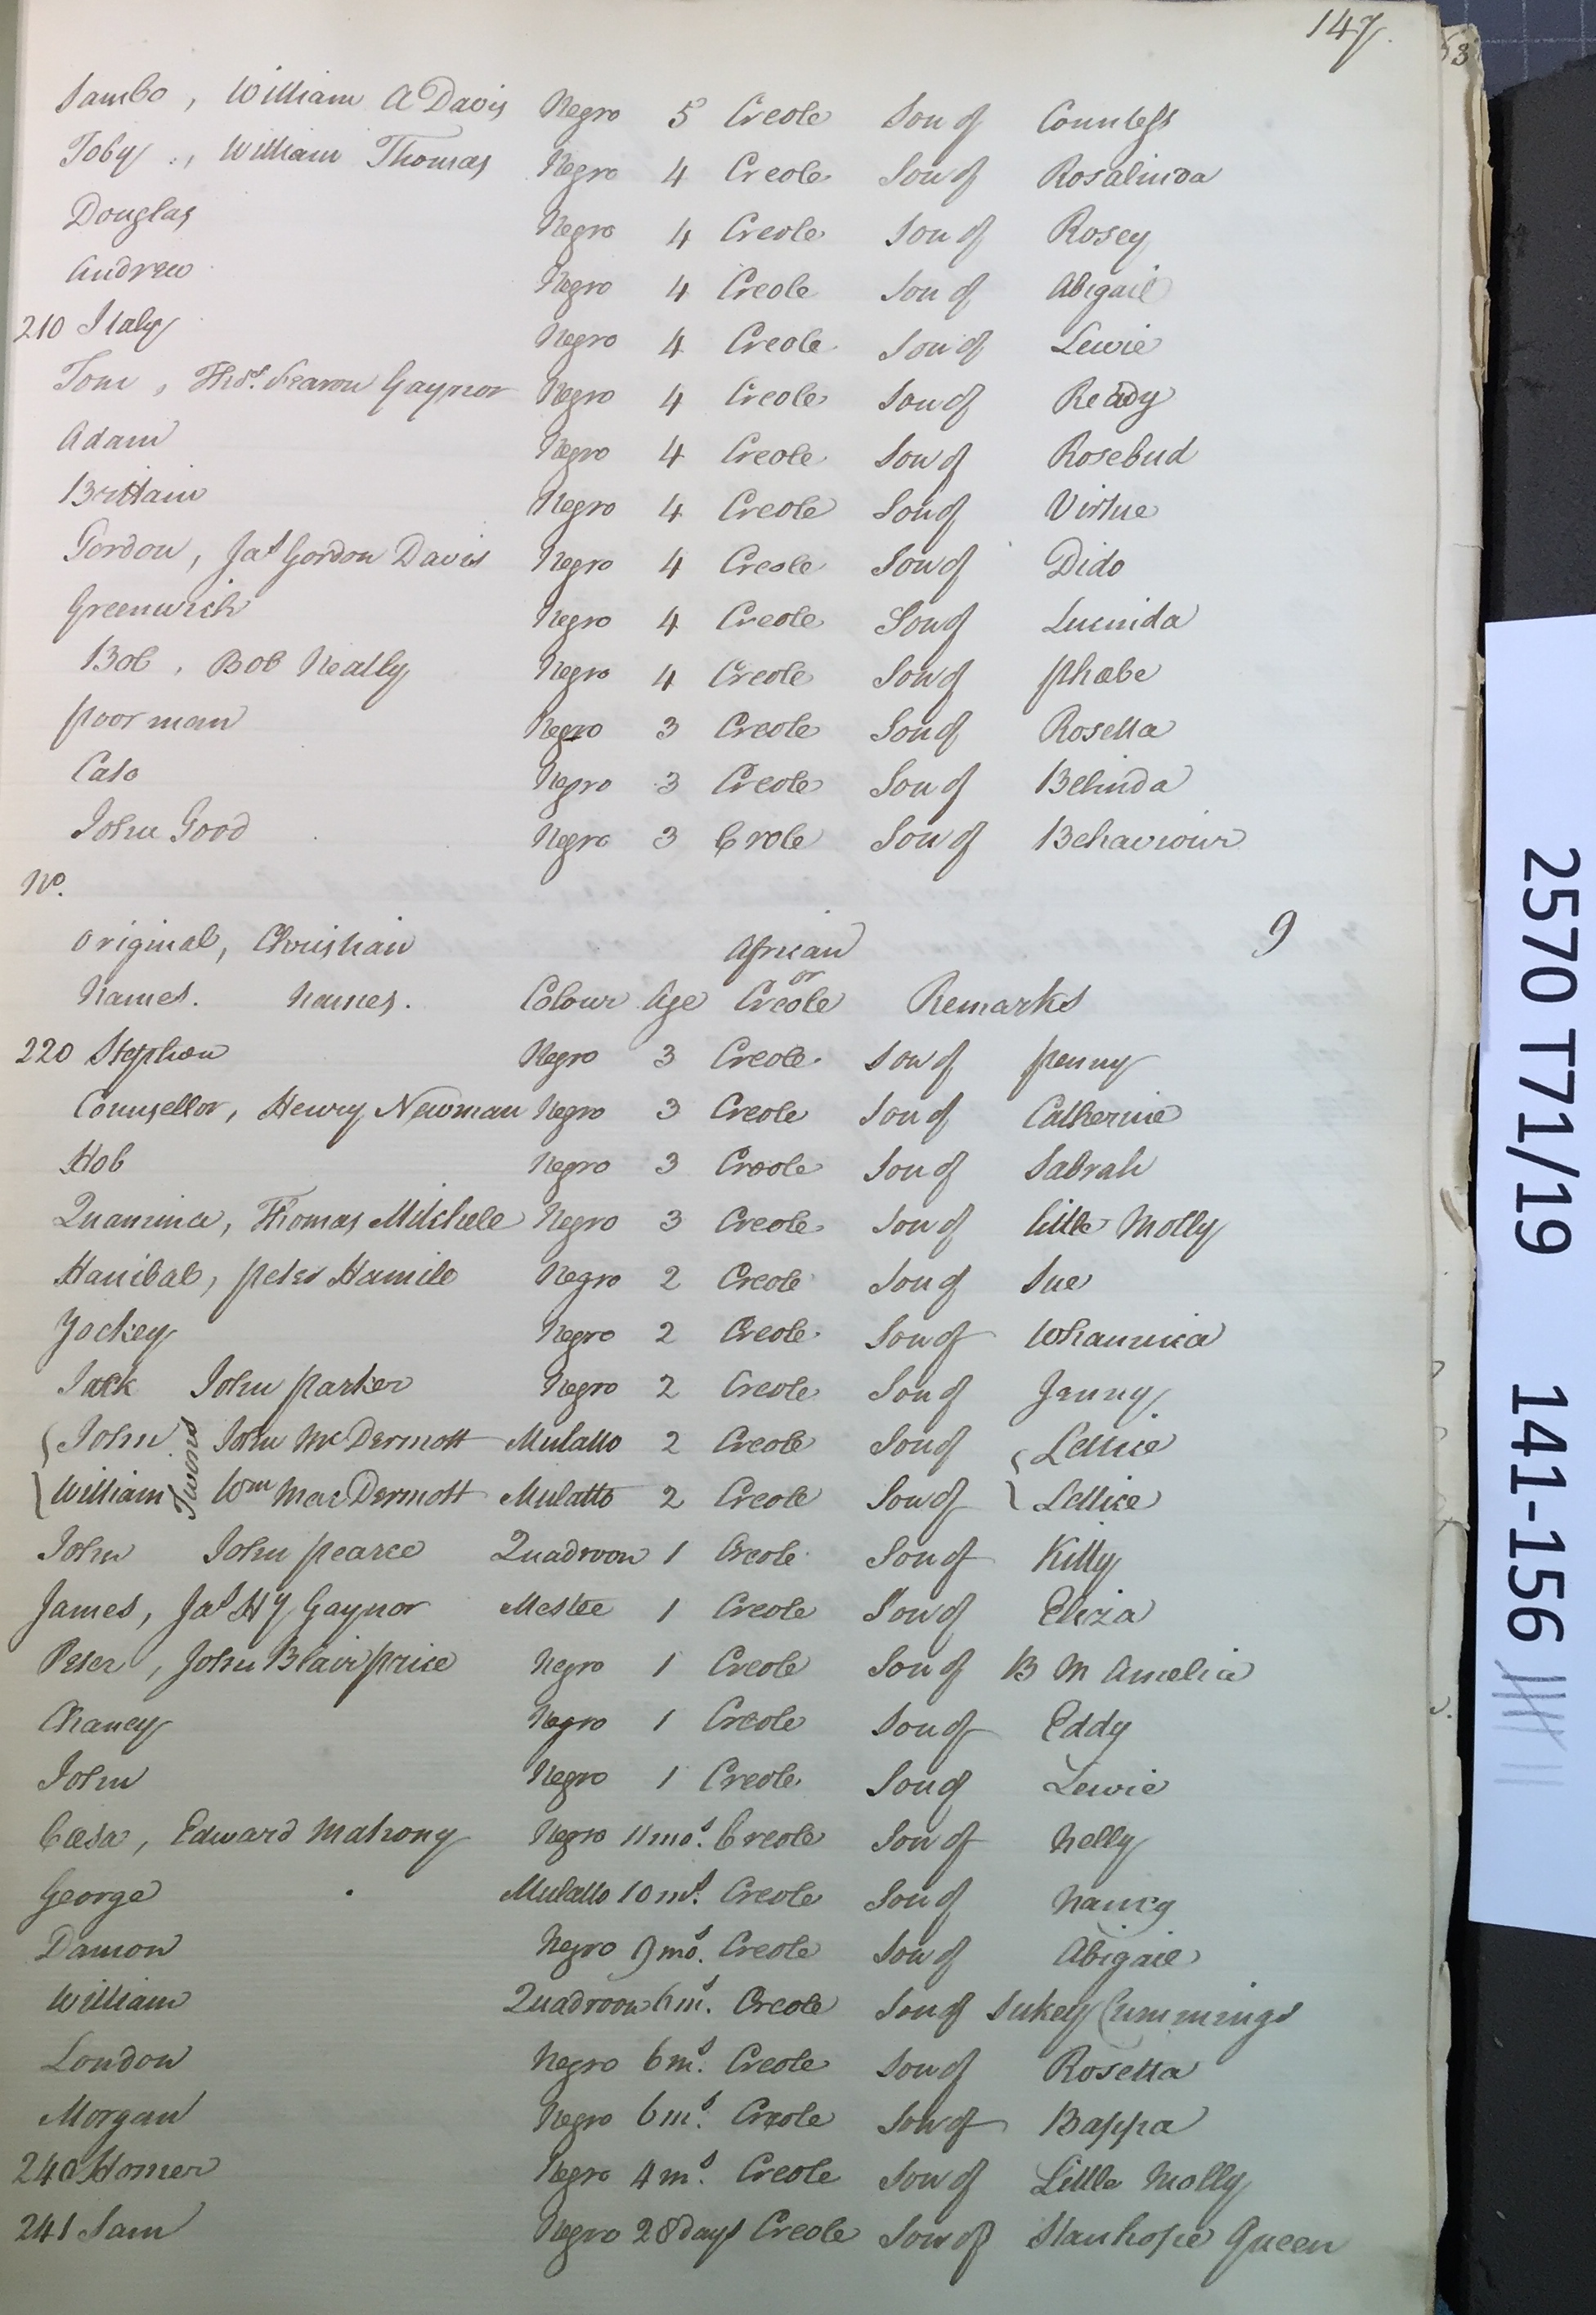 147.
Sambo, William A Davis Negro 5 Creole Son of Countess
Toby, William Thomas Negro 4 Creole Son of Rosalinda
Douglas Negro 4 Creole Son of Rosey
Andrew Negro 4 Creole Son of Abigail
210 Italy Negro 4 Creole Son of Lewie
Tom, Thos. Fearon Gaynor Negro 4 Creole Son of Ready
Adam Negro 4 Creole Son of Rosebud
Brittain Negro 4 Creole Son of Virtue
Gordon, Jas Gordon Davis Negro 4 Creole Son of Dido
Greenwich Negro 4 Creole Son of Lucinida
Bob, Bob Neally Negro 4 Creole Son of Phœbe
Poor man Negro 3 Creole Son of Rosetta
Cato Negro 3 Creole Son of Belinda
John Good Negro 3 Crole Son of Behaviour
No.
9
Original, Christian African
or
Names. Names. Colour Age Creole Remarks
220 Stephen Negro 3 Creole Son of Penny
Counsellor, Henry Newman Negro 3 Creole Son of Catherine
Hob Negro 3 Creole Son of Sabrah
Quamina, Thomas Mitchele Negro 3 Creole Son of Little Molly
Hanibal, Peter Hamile Negro 2 Creole Son of Sue
Jockey Negro 2 Creole Son of Whannica
Jack John Parker Negro 2 Creole Son of Jenny
John Twons John McDermott Mulatto 2 Creole Son of Lettice
William Wm MacDermott Mulatto 2 Creole Son of Lettice
John John Pearce Quadroon 1 Creole Son of Kitty
James, Jas Hy Gaynor Mestee 1 Creole Son of Eliza
Peter, John Blair Price Negro 1 Creole Son of B M Amelia
Chancy Negro 1 Creole Son of Eddy
John Negro 1 Creole Son of Lewie
Cæsa, Edward Mahony Negro 11 mos. Creole Son of Nelly
George Mulatto 10 ms. Creole Son of Nancy
Damon Negro 9 mos. Creole Son of Abigail
William Quadroon 6 ms. Creole Son of Sukey Cummings
London Negro 6 ms. Creole Son of Rosetta
Morgan Negro 6 ms. Creole Son of Bappa
240 Homer Negro 4 ms. Creole Son of Little Molly
241 Sam Negro 28 days Creole Son of Stanhope Queen
2570 T71/19 141-156